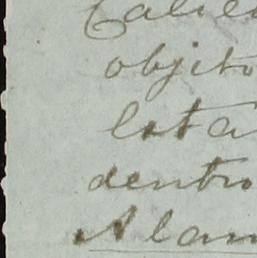 objeto
está
dentro
Alam